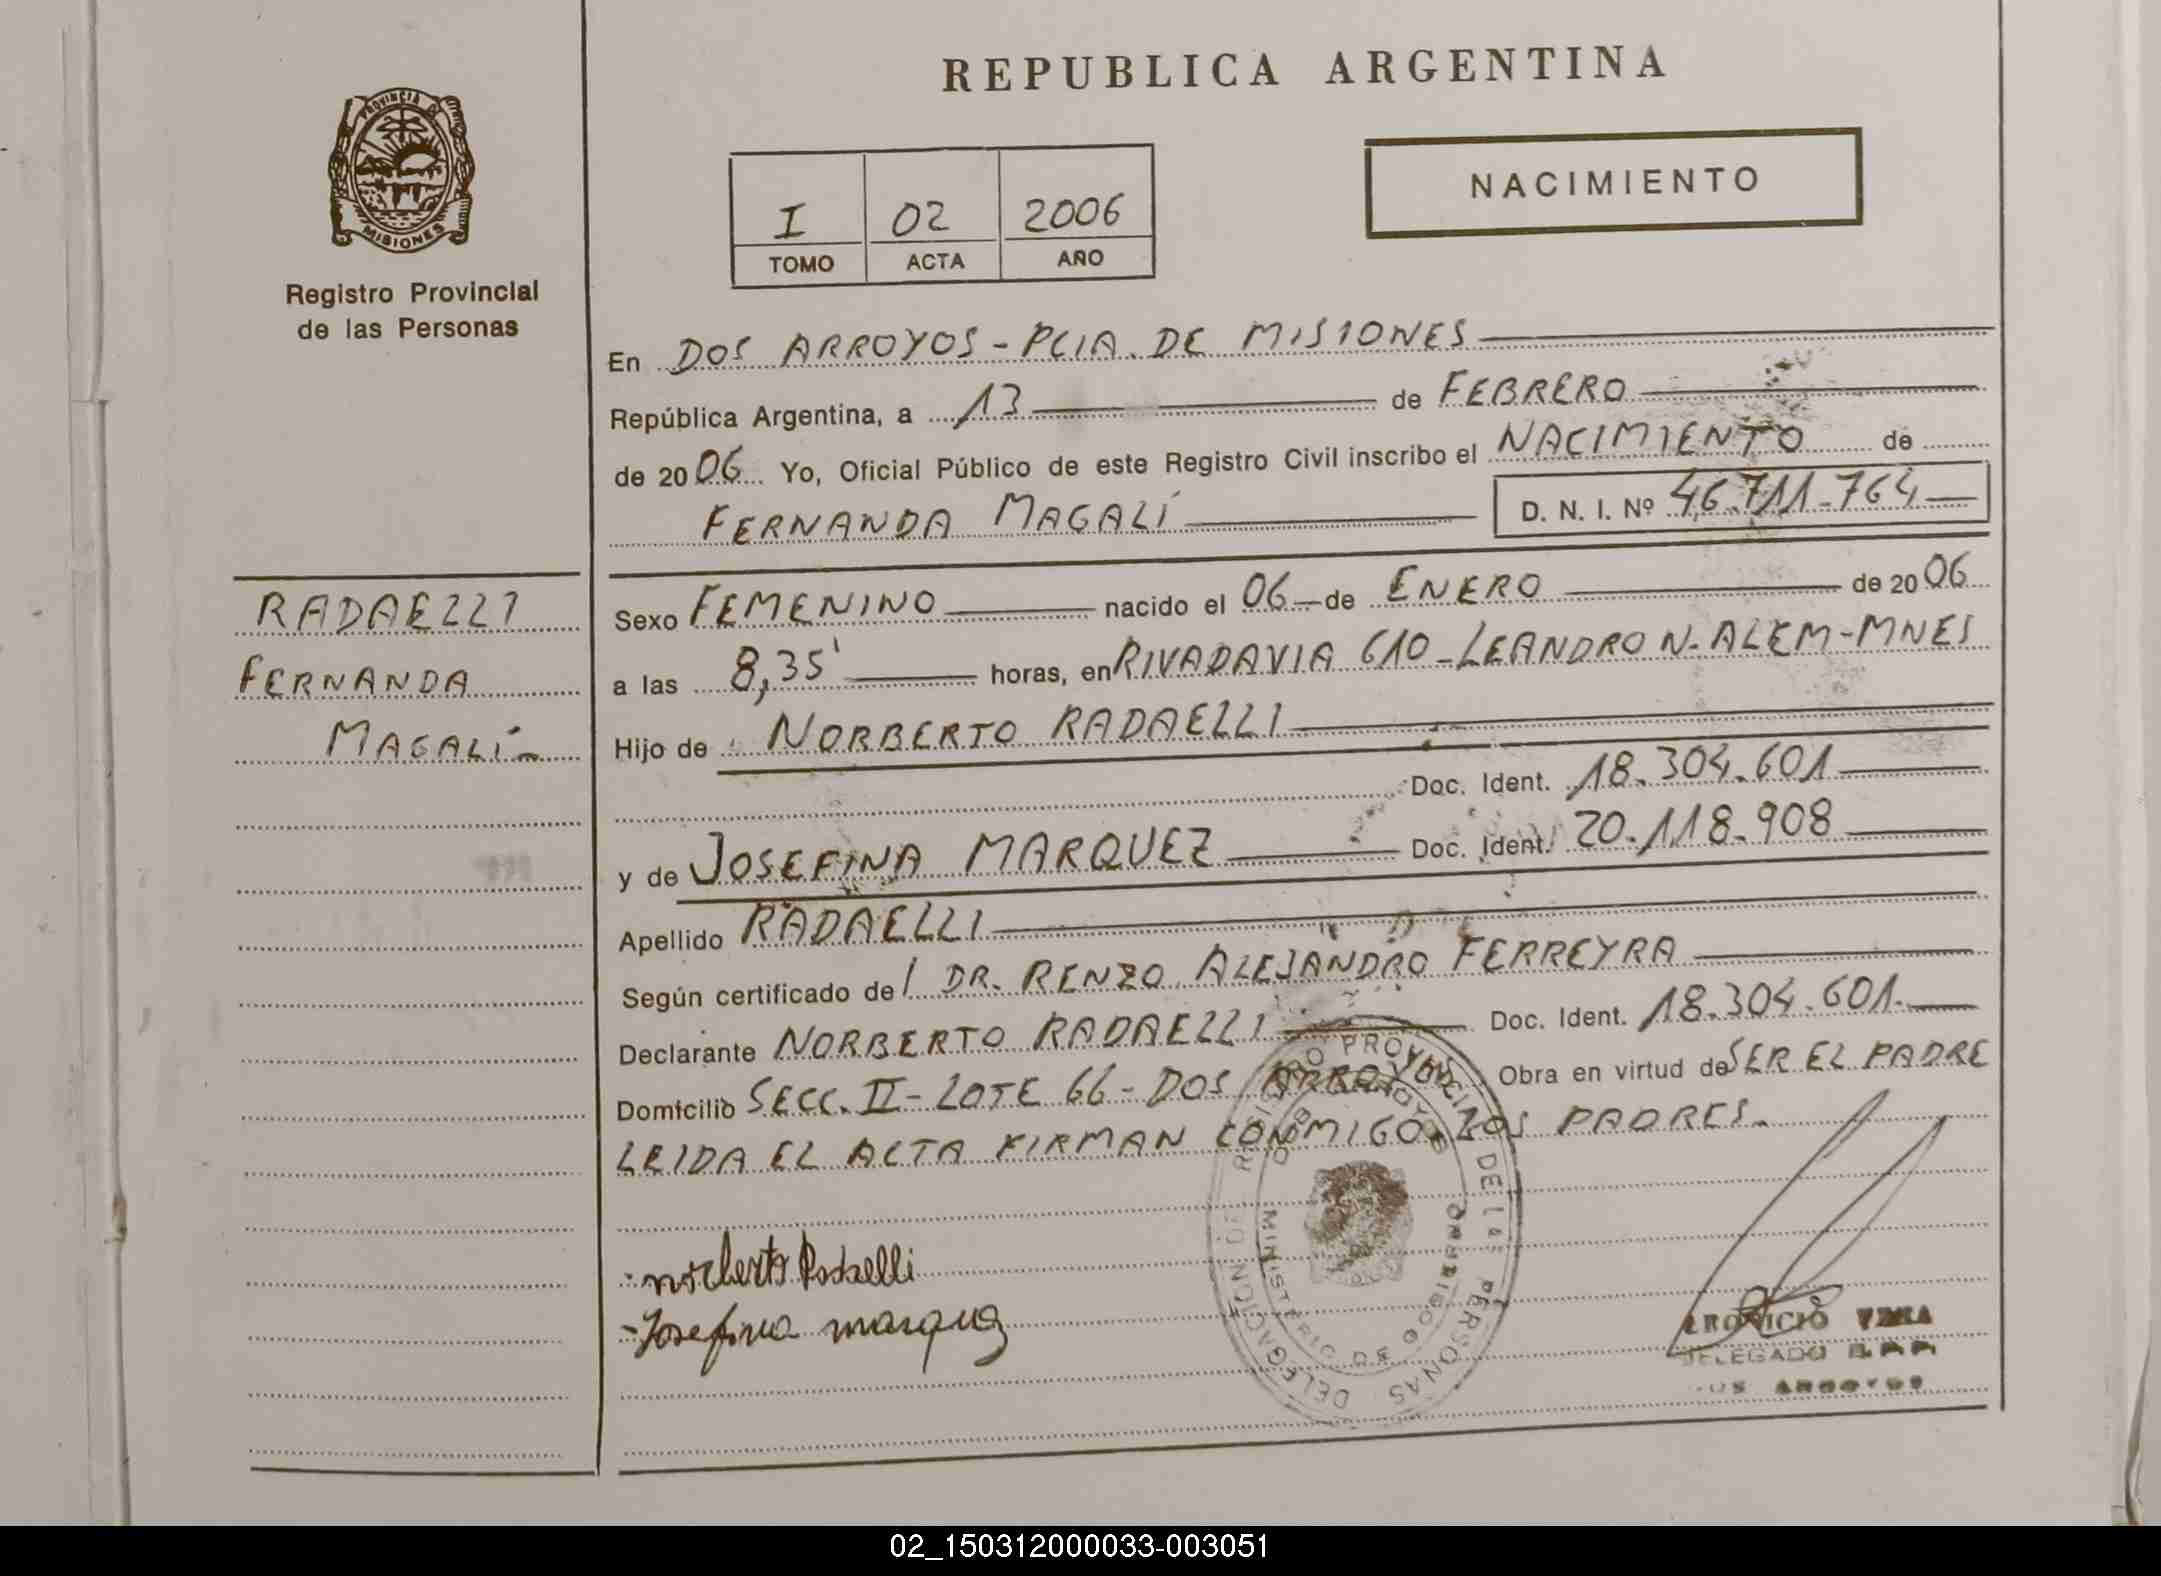 REPUBLICA ARGENTINA
PROVINCIA DE
MISIONES
Registro Provincial
de las Personas
I 02 2006
TOMO ACTA AÑO
NACIMIENTO
En DOS ARROYOS - PCIA. DE MISIONES
República Argentina, a 13 de FEBRERO
de 2006 Yo, Oficial Público de este Registro Civil inscribo el NACIMIENTO de
FERNANDA MAGALÍ D. N. I. Nº 46.711.764
RADAELLI
FERNANDA
MAGALÍ
Sexo FEMENINO nacido el 06 de ENERO de 2006
a las 8,35' horas, en RIVADAVIA 610 - LEANDRO N. ALEM - MNES
Hijo de NORBERTO RADAELLI
Doc. Ident. 18.304.601
y de JOSEFINA MARQUEZ Doc. Ident. 20.118.908
Apellido RADAELLI
Según certificado de l DR. RENZO ALEJANDRO FERREYRA
Declarante NORBERTO RADAELLI Doc. Ident. 18.304.601.
Domicilio SECC. II - LOTE 66 - DOS ARROYOS Obra en virtud de SER EL PADRE
LEIDA EL ACTA FIRMAN CONMIGO LOS PADRES.
norberto Radaelli
Josefina marquez
DELEGACION DE REGISTRO PROVINCIAL DE LAS PERSONAS
DOS ARROYOS
MINISTERIO DE GOBIERNO
DELEGADO
02_150312000033-003051